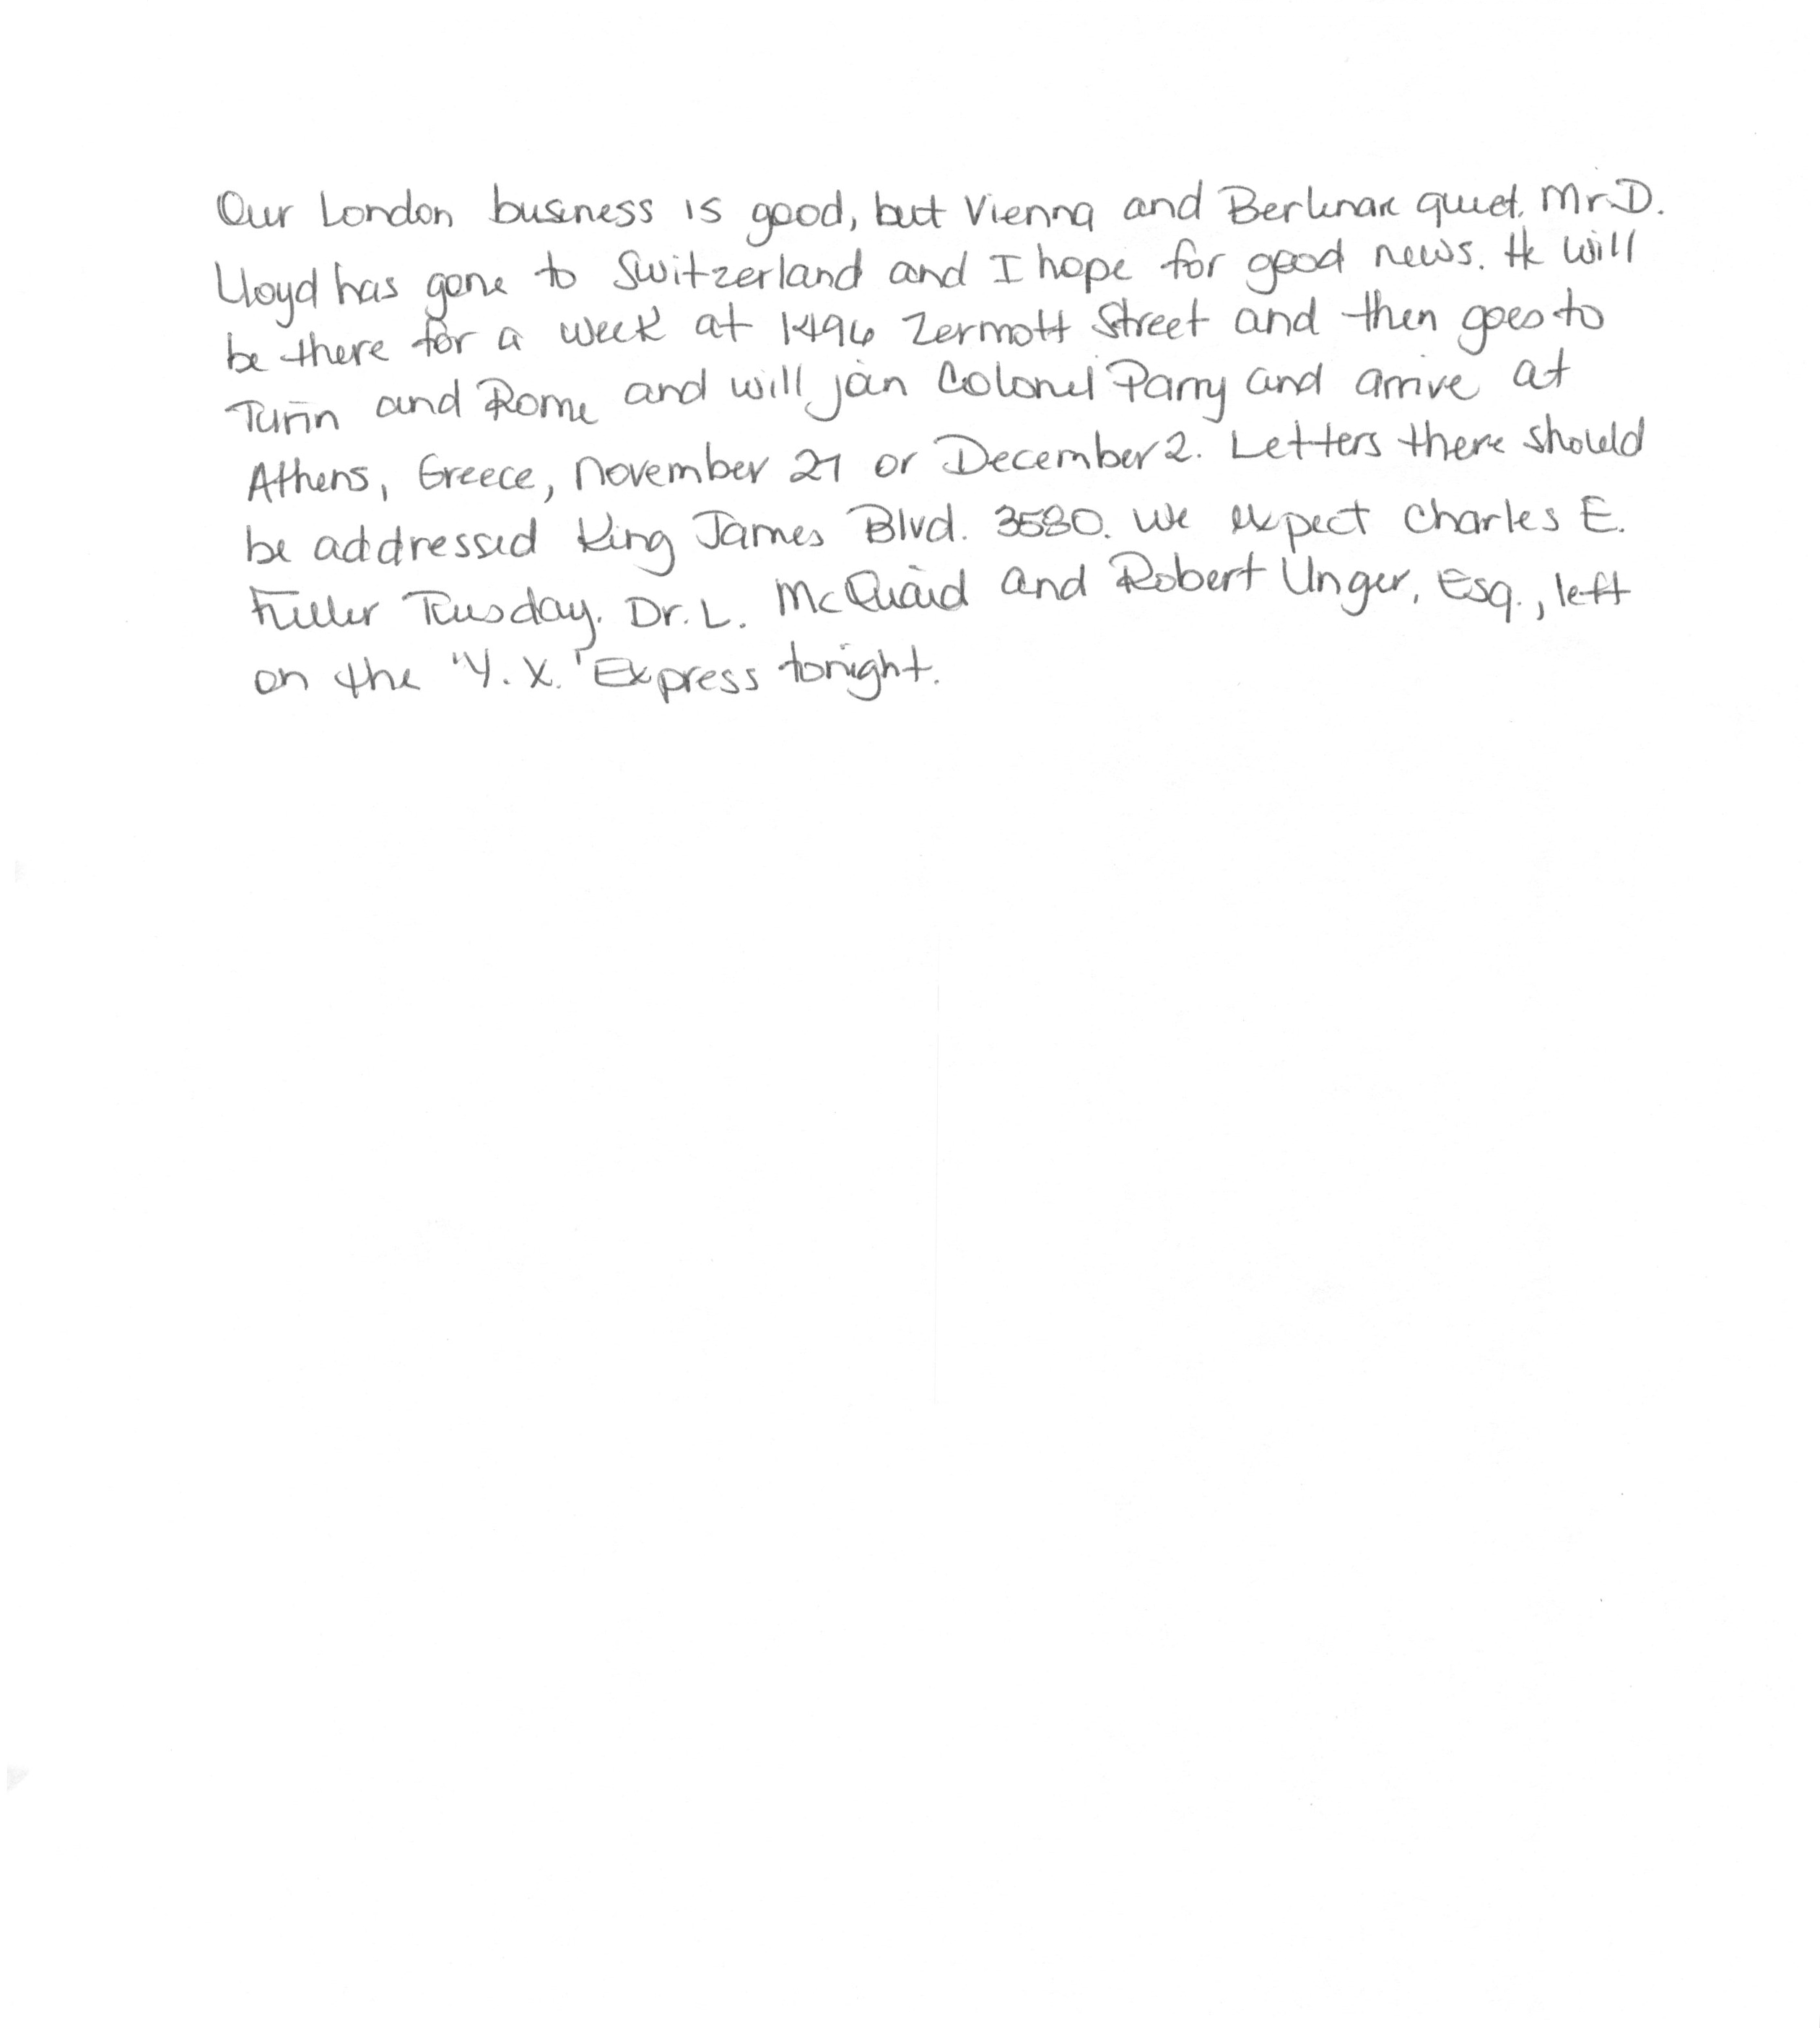 Our London business is good, but Vienna and Berlin are quiet. Mr. D.
Lloyd has gone to Switzerland and I hope for good news. He will
be there for a week at 1496 Zermott Street and then goes to
Turin and Rome and will join Colonel Parry and arrive at
Athens, Greece, November 27 or December 2. Letters there should
be addressed King James Blvd. 3580. We expect Charles E.
Fuller Tuesday. Dr. L. McQuaid and Robert Unger, Esq., left
on the "Y. X." Express tonight.